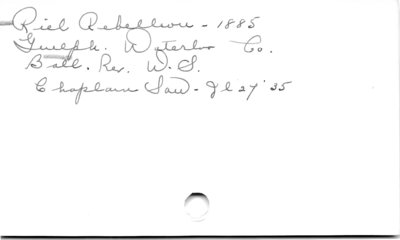 Riel Rebellion - 1885
Guelph. Waterloo Co.
Ball. Rev. W. S.
Chaplain Saw - Jl 27 '35